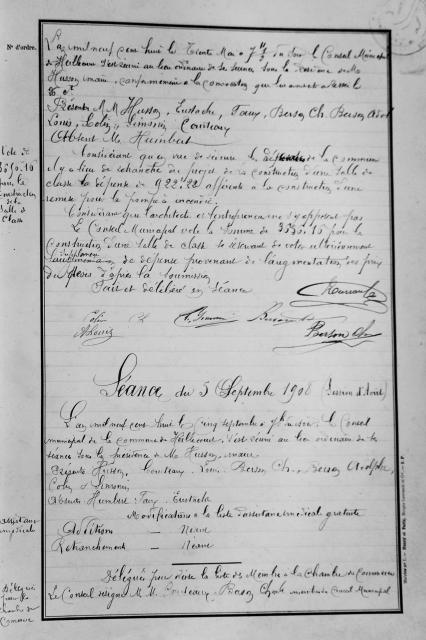 N° d'ordre.
L'an mil neuf cent huit le Trente Mai à 7 h ½ du soir le Conseil Municipal
de Heillecourt s'est réuni au lieu ordinaire de ses séances sous la présidence de Mr
Husson, maire, conformément à la convocation
Présents M M Husson, Eustache, Faux, Berson Ch. Berson Adol
Louis, Colin, Simonin, Couteaux
Absent Mr Humbert
Vote de
3590.10
pour la
Construction
de la
Salle de
Classe
Considérant qu'en vue de réduire les dépenses de la commune
il y a lieu de retrancher du projet de la construction d'une salle de
classe la dépense de 922.28 afférente à la construction d'une
remise pour la pompe à incendie.
Considérant que l'architecte et l'entrepreneur ne s'y opposent pas
Le Conseil Municipal vote la somme de 3590.10 pour la
construction d'une salle de classe se réservant de voter ultérieurement
le supplément de dépense provenant de l'augmentation des prix
des pièces d'après la soumission
Fait et délibéré en séance
Colin Ch
A Louis
Simonin
Berson Ch
Séance du 5 Septembre 1908 (Session d'Août)
L'an mil neuf cent huit le cinq septembre à 7 h du soir le Conseil
municipal de la commune de Heillecourt s'est réuni au lieu ordinaire de ses
séances sous la présidence de Mr Husson, maire
Présents Husson, Couteaux, Louis, Berson Ch, Berson Adolphe,
Colin et Simonin
Absents Humbert Faux Eustache
assistance
médicale
Modifications à la liste d'assistance médicale gratuite
Addition — Néant
Retranchement — Néant
Délégués
pour la
chambre de
Commerce
Délégués pour élire la liste des Membres à la Chambre de Commerce
Le Conseil désigne M. M. Couteaux, Berson Ch membres du Conseil Municipal